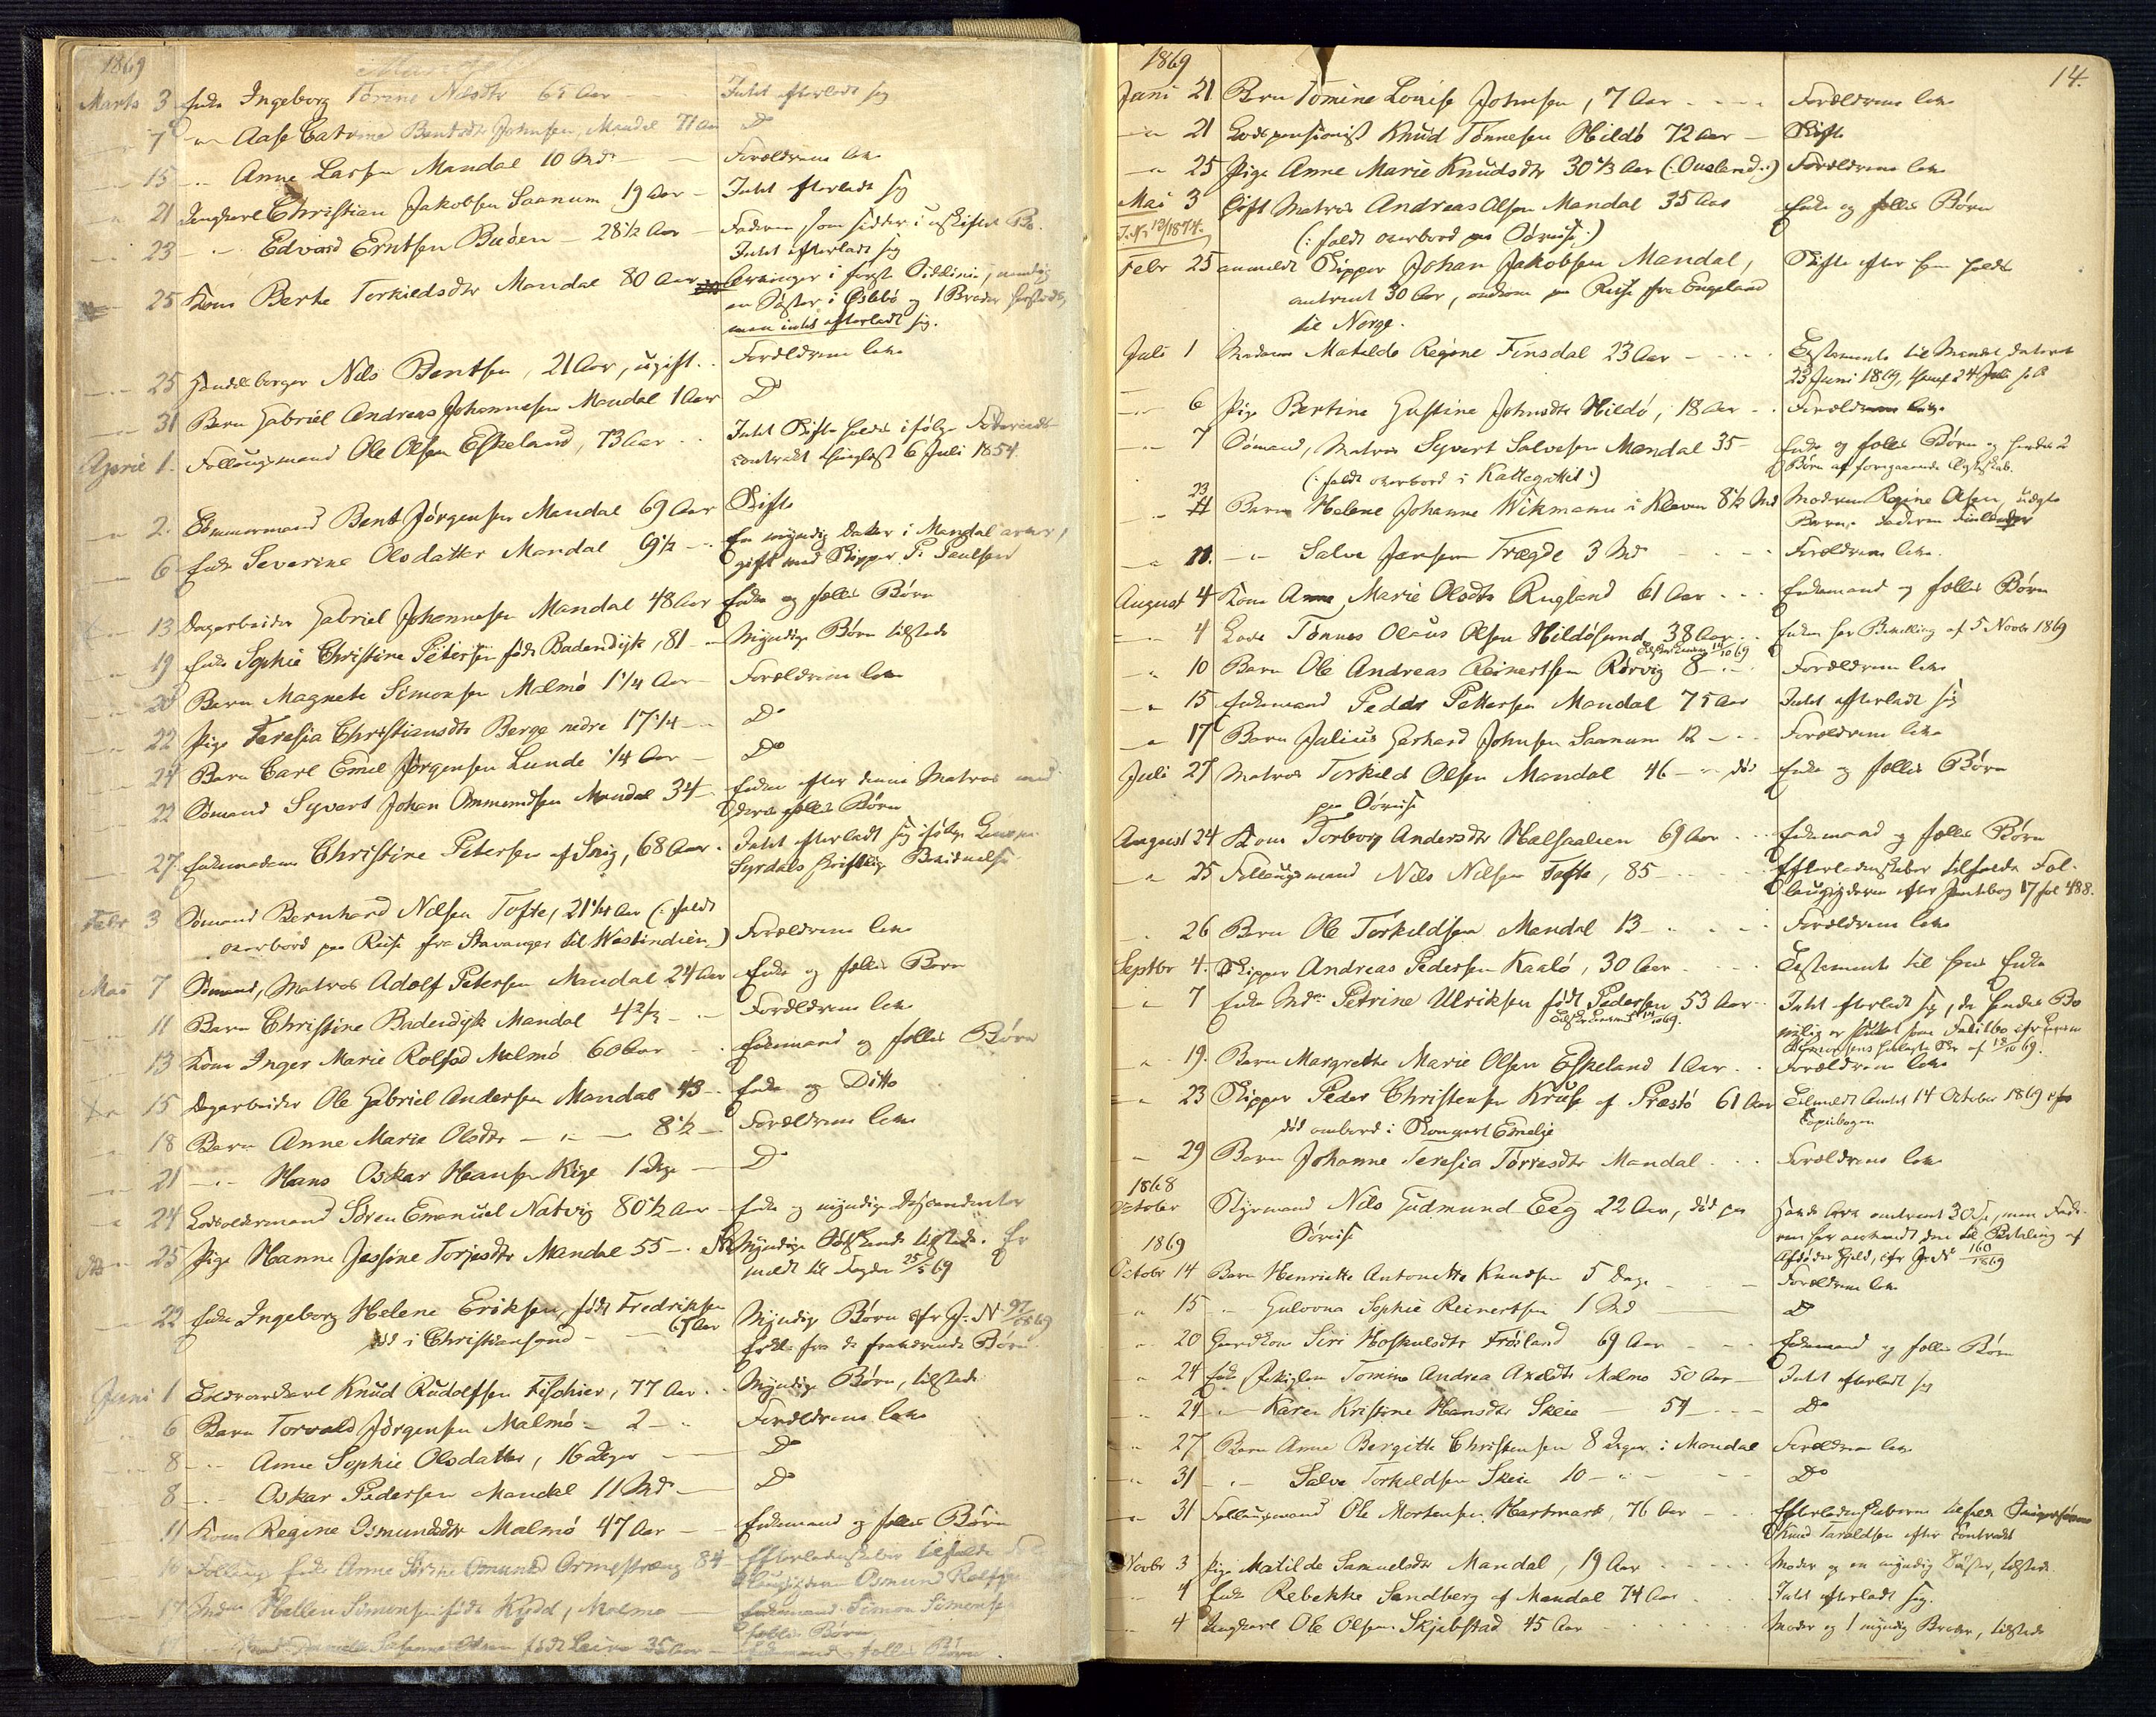 1869
Marts 3 Enke Ingeborg Torine Nilsdtr 65 Aar Intet efterladt sig
7 Aase Catrine Bentsdtr Johnsen, Mandal 71 Aar Do
15 Anne Larsen Mandal 10 Md Forældrene leve
21 Ungkarl Christian Jakobsen Saanum 19 Aar Intet efterladt sig
23 Edvard Erntsen Buøen 28 1/2 Aar Faderen som sidder i uskiftet Bo.
Intet efterladt sig
25 Kone Berte Torkildsdtr Mandal 80 Aar Arvinger i første Sidelinie, nemlig
en Søster i og 1 Broder
men intet efterladt sig.
25 Handelsborger Nils Bentsen, 21 Aar, ugift Forældrene leve
31 Barn Gabriel Andreas Johannesen Mandal 1 Aar Do
April 1. Follaugsmand Ole Olsen Eskeland, 73 Aar Intet Skifte holdes ifølge
contrakt thinglæst 6 Juli 1854
2. Tømmermand Bent Jørgensen Mandal 69 Aar Skifte
6 Enke Severine Olsdatter Mandal 69 1/2 En myndig Datter i Mandal arver,
gift med Skipper P. Paulsen
13 Dagarbeider Gabriel Johannesen Mandal 48 Aar Enke og fælles Børn
19 Enke Sophie Christine Petersen født Badendijk, 81 Myndige Børn tilstede
20 Barn Magnete Simonsen Malmø 1 1/4 Aar Forældrene leve
22 Pige Teresia Christiansdtr Berge nedre 17 1/4 Do
24 Barn Carl Emil Jørgensen Lunde 1/4 Aar Do
22 Sømand Syvert Johan Ommundsen Mandal 34 Enken efter denne Matros med
deres fælles Børn
27. Enkemadame Christine Petersen af 68 Aar. Intet efterladt sig ifølge
Syrdals skriftlig Bevidnelse
Febr 3 Sømand Bernhard Nilsen Tofte, 21 3/4 Aar (: faldt
overbord paa Reise fra Stavanger til Westindien) Forældrene leve
Mai 7 Sømand, Matros Adolf Petersen Mandal 24 Aar Enke og fælles Barn
11 Barn Christine Badendijk Mandal 4 2/3 Forældrene leve
13 Kone Inger Marie Rolfsd Malmø 60 Aar Enkemand og fælles Børn
15 Dagarbeider Ole Gabriel Andersen Mandal 43 Enke og Ditto
18 Barn Anne Marie Olsdtr 8 1/2 Forældrene leve
21 Hans Oskar Hansen Kige 1 Dag Do
24 Lodsoldermand Søren Emanuel Natvig 80 1/2 Aar Enke og myndige Descendenter
25 Pige Hanne Jessine Torjesdtr Mandal 55 Myndige Sødskende tilstede. Er
meldt til Fogden 25/5 69
22 Enke Ingeborg Helene Eriksen, født Fredriksen Myndige Børn cfr J. N 97/1869
død i Christiansand 67 Aar Erkl. fra de fraværende Børn.
Juni 1 Knud Rudolfsen Fischier, 77 Aar Myndige Børn, tilstede
6 Barn Torvald Jørgensen Malmø 2 Forældrene leve
8 Anne Sophie Olsdatter, 16 Dager Do
8 Oskar Pedersen Mandal 11 Md Do
11 Kone Regine Osmundsdtr Malmø 47 Aar Enkemand og fælles Børn
10 Follaugs Enke Anne Osmund 84 Efterladenskaber tilfalde
Osmund Rolfsen
17 Hellen Simonsen født Kydd, Malmø Enkemand Simon Simonsen
fælles Børn
35 Aar Enkemand og fælles Børn.
14.
1869
Juni 21 Barn Tomine Louise Johnsen, 7 Aar Forældrene leve
21 Lodspensionist Knud Tønnesen Hildø 72 Aar Skifte
25 Pige Anne Marie Knudsdtr 30 1/3 Aar (: Ousland :) Forældrene leve
Mai 3 Gift Matros Andreas Olsen Mandal 35 Aar Enke og fælles Børn
(: faldt overbord paa Søreise :)
Febr 25 anmeldt Skipper Johan Jakobsen Mandal, Skifte efter ham holdes
omtrent 30 Aar, omkom paa Reise fra Engeland
til Norge.
Juli 1 Madam Matilde Regine Finsdal 23 Aar Testamente til Manden dateret
23 Juni 1869, thingl 24 Juli s. A
6 Pige Bertine Gustine Johnsdtr Hildø, 18 Aar Forældrene leve
7 Sømand, Matros Syvert Salvesen Mandal 35 Enke og fælles Børn og hendes 2
(: faldt overbord i Kattegattet :) Børn af foregaaende Ægteskab.
23 Barn Helene Johanne Wikmann i Kleven 8 1/2 Md Moderen Regine Olsen, uægte
Barn. Faderen Finlænder
Salve Jensen Trægde 3 Md Forældrene leve.
August 4 Kone Anne Marie Olsdtr Rugland 61 Aar Enkemand og fælles Børn
4 Lods Tønnes Olaus Olsen Hildøsund 38 Aar Enken har Bevilling af 5 Novbr 1869
10 Barn Ole Andreas Reinertsen Rørvig 8 Forældrene leve
15 Enkemand Peder Pettersen Mandal 75 Aar Intet efterladt sig
17 Barn Julius Gerhard Johnsen Saanum 12 Forældrene leve
Juli 27 Matros Torkild Olsen Mandal 46 død Enke og fælles Børn
paa Søreise
August 24 Kone Torborg Andersdtr Halsaalien 69 Aar Enkemand og fælles Børn
25 Follaugsmand Nils Nilsen Tofte, 85 Efterladenskaber tilfalder Fol-
laugsyderen efter Pantebog 17 fol 488.
26 Barn Ole Torkildsen Mandal 13 Forældrene leve
Septbr 4. Skipper Andreas Pedersen Kaalø, 30 Aar Testamente til hans Enke
7 Enke Md Petrine Ulriksen født Pedersen 53 Aar Intet efterladt sig, da hendes Bo
nylig er sluttet som Fallitbo cfr
af 18/10 69.
19. Barn Margrethe Marie Olsen Eskeland 1 Aar Forældrene leve
23 Skipper Peder Christensen Kruse af Præstø 61 Aar Tilmeldt Amtet 14 October 1869 cfr
død ombord i Skonnert Emelje Copiebogen
29 Barn Johanne Teresia Tørresdtr Mandal Forældrene leve
1868
October Styrmand Nils Gudmund Eeg 22 Aar, død paa Hans Arv omtrent 30 men Fade-
Søreise ren har anvendt den til Betaling af
1869 Afdødes Gjæld, cfr J. N 160/1869
Octobr 14 Barn Henriette Antonette Knudsen 5 Dage Forældrene leve
15 Gulovna Sophie Reinertsen 1 Md Do
20 Gaardkone Siri Hoskuldsdtr Frøiland 69 Aar Enkemand og fælles Børn
24 Tomine Andrea Axeldtr Malmø 50 Aar Intet efterladt sig
24 Karen Kristine Hansdtr Skeie 54 Do
27 Barn Anne Bergitte Christensen 8 Dager i Mandal Forældrene leve
31 Salve Torkeldsen Skeie 10 Do
31 Follaugsmand Ole Mortensen Hartmark, 76 Aar Efterladenskaberne tilfalde
Knud Taraldsen efter Contrakt
Novbr 3 Pige Matilde Samuelsdtr Mandal, 19 Aar Moder og en myndig Søster, tilstede
4 Enke Rebekke Sandberg af Mandal 74 Aar Intet efterladt sig.
4 Ungkarl Ole Olsen Skjebstad 45 Aar Moder og 1 myndig Broder, tilstede